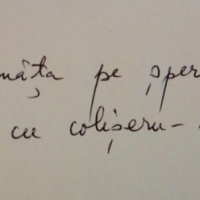 mâța pe șper
cu colișeru-